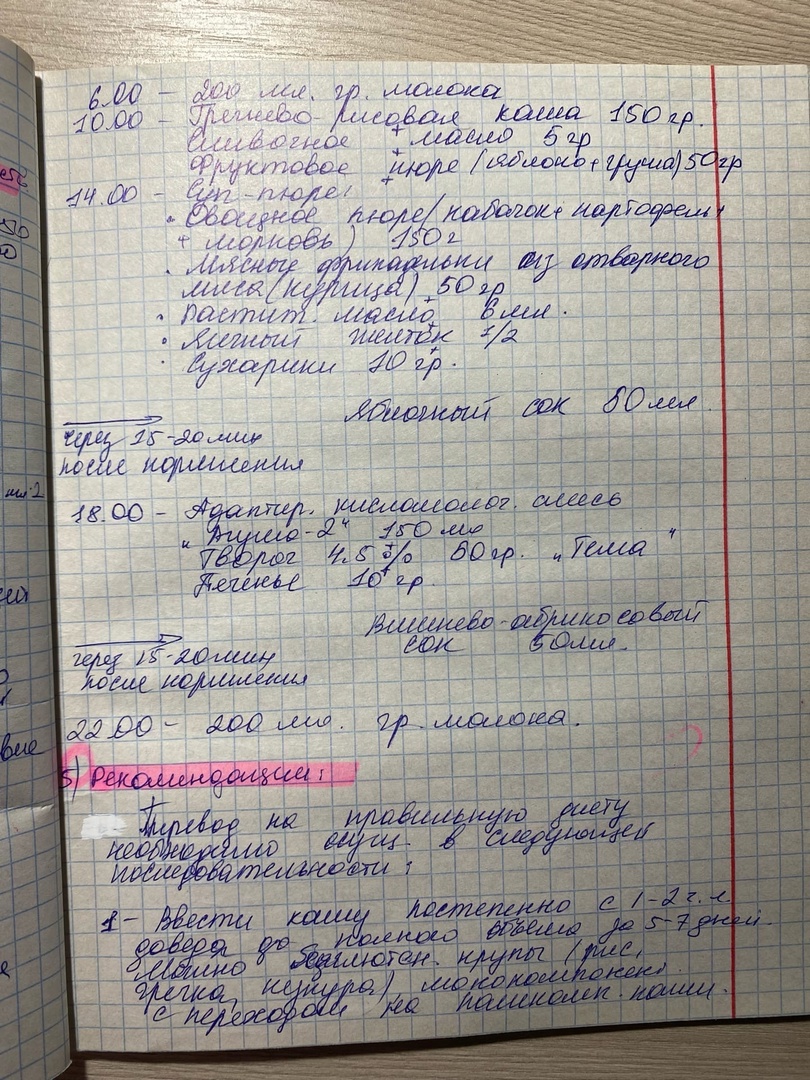 6.00 – 200 мл. гр. молока
10.00 – Гречнево-рисовая каша 150 гр.
+
Сливочное масло 5 гр
+
Фруктовое пюре (яблоко + груша) 50 гр
14.00 – Суп-пюре:
• Овощное пюре (кабачок + картофель +
+ морковь) 150 г
• Мясные фрикадельки из отварного
мяса (курица) 50 гр
• Растит. масло 6 мл.
• Яичный желток 1/2
• Сухарики 10 гр.
Яблочный сок 50 мл.
через 15-20 мин
после кормления
18.00 – Адаптир. кисломолоч. смесь
„Агуша-2" 150 мл
Творог 4.5 % 50 гр. „Тема"
+
Печенье 10 гр.
Вишнево-абрикосовый
сок 50 мл.
через 15-20 мин
после кормления
22.00 – 200 мл. гр. молока.
5) Рекомендации:
Перевод на правильную диету
необходимо осущ. в следующей
последовательности:
1 – Ввести кашу постепенно с 1-2 ч. л.
доведя до полного объема за 5-7 дней.
безглютен. крупы (рис,
гречка, кукуруза) монокомпонент.
с переходом на каши.